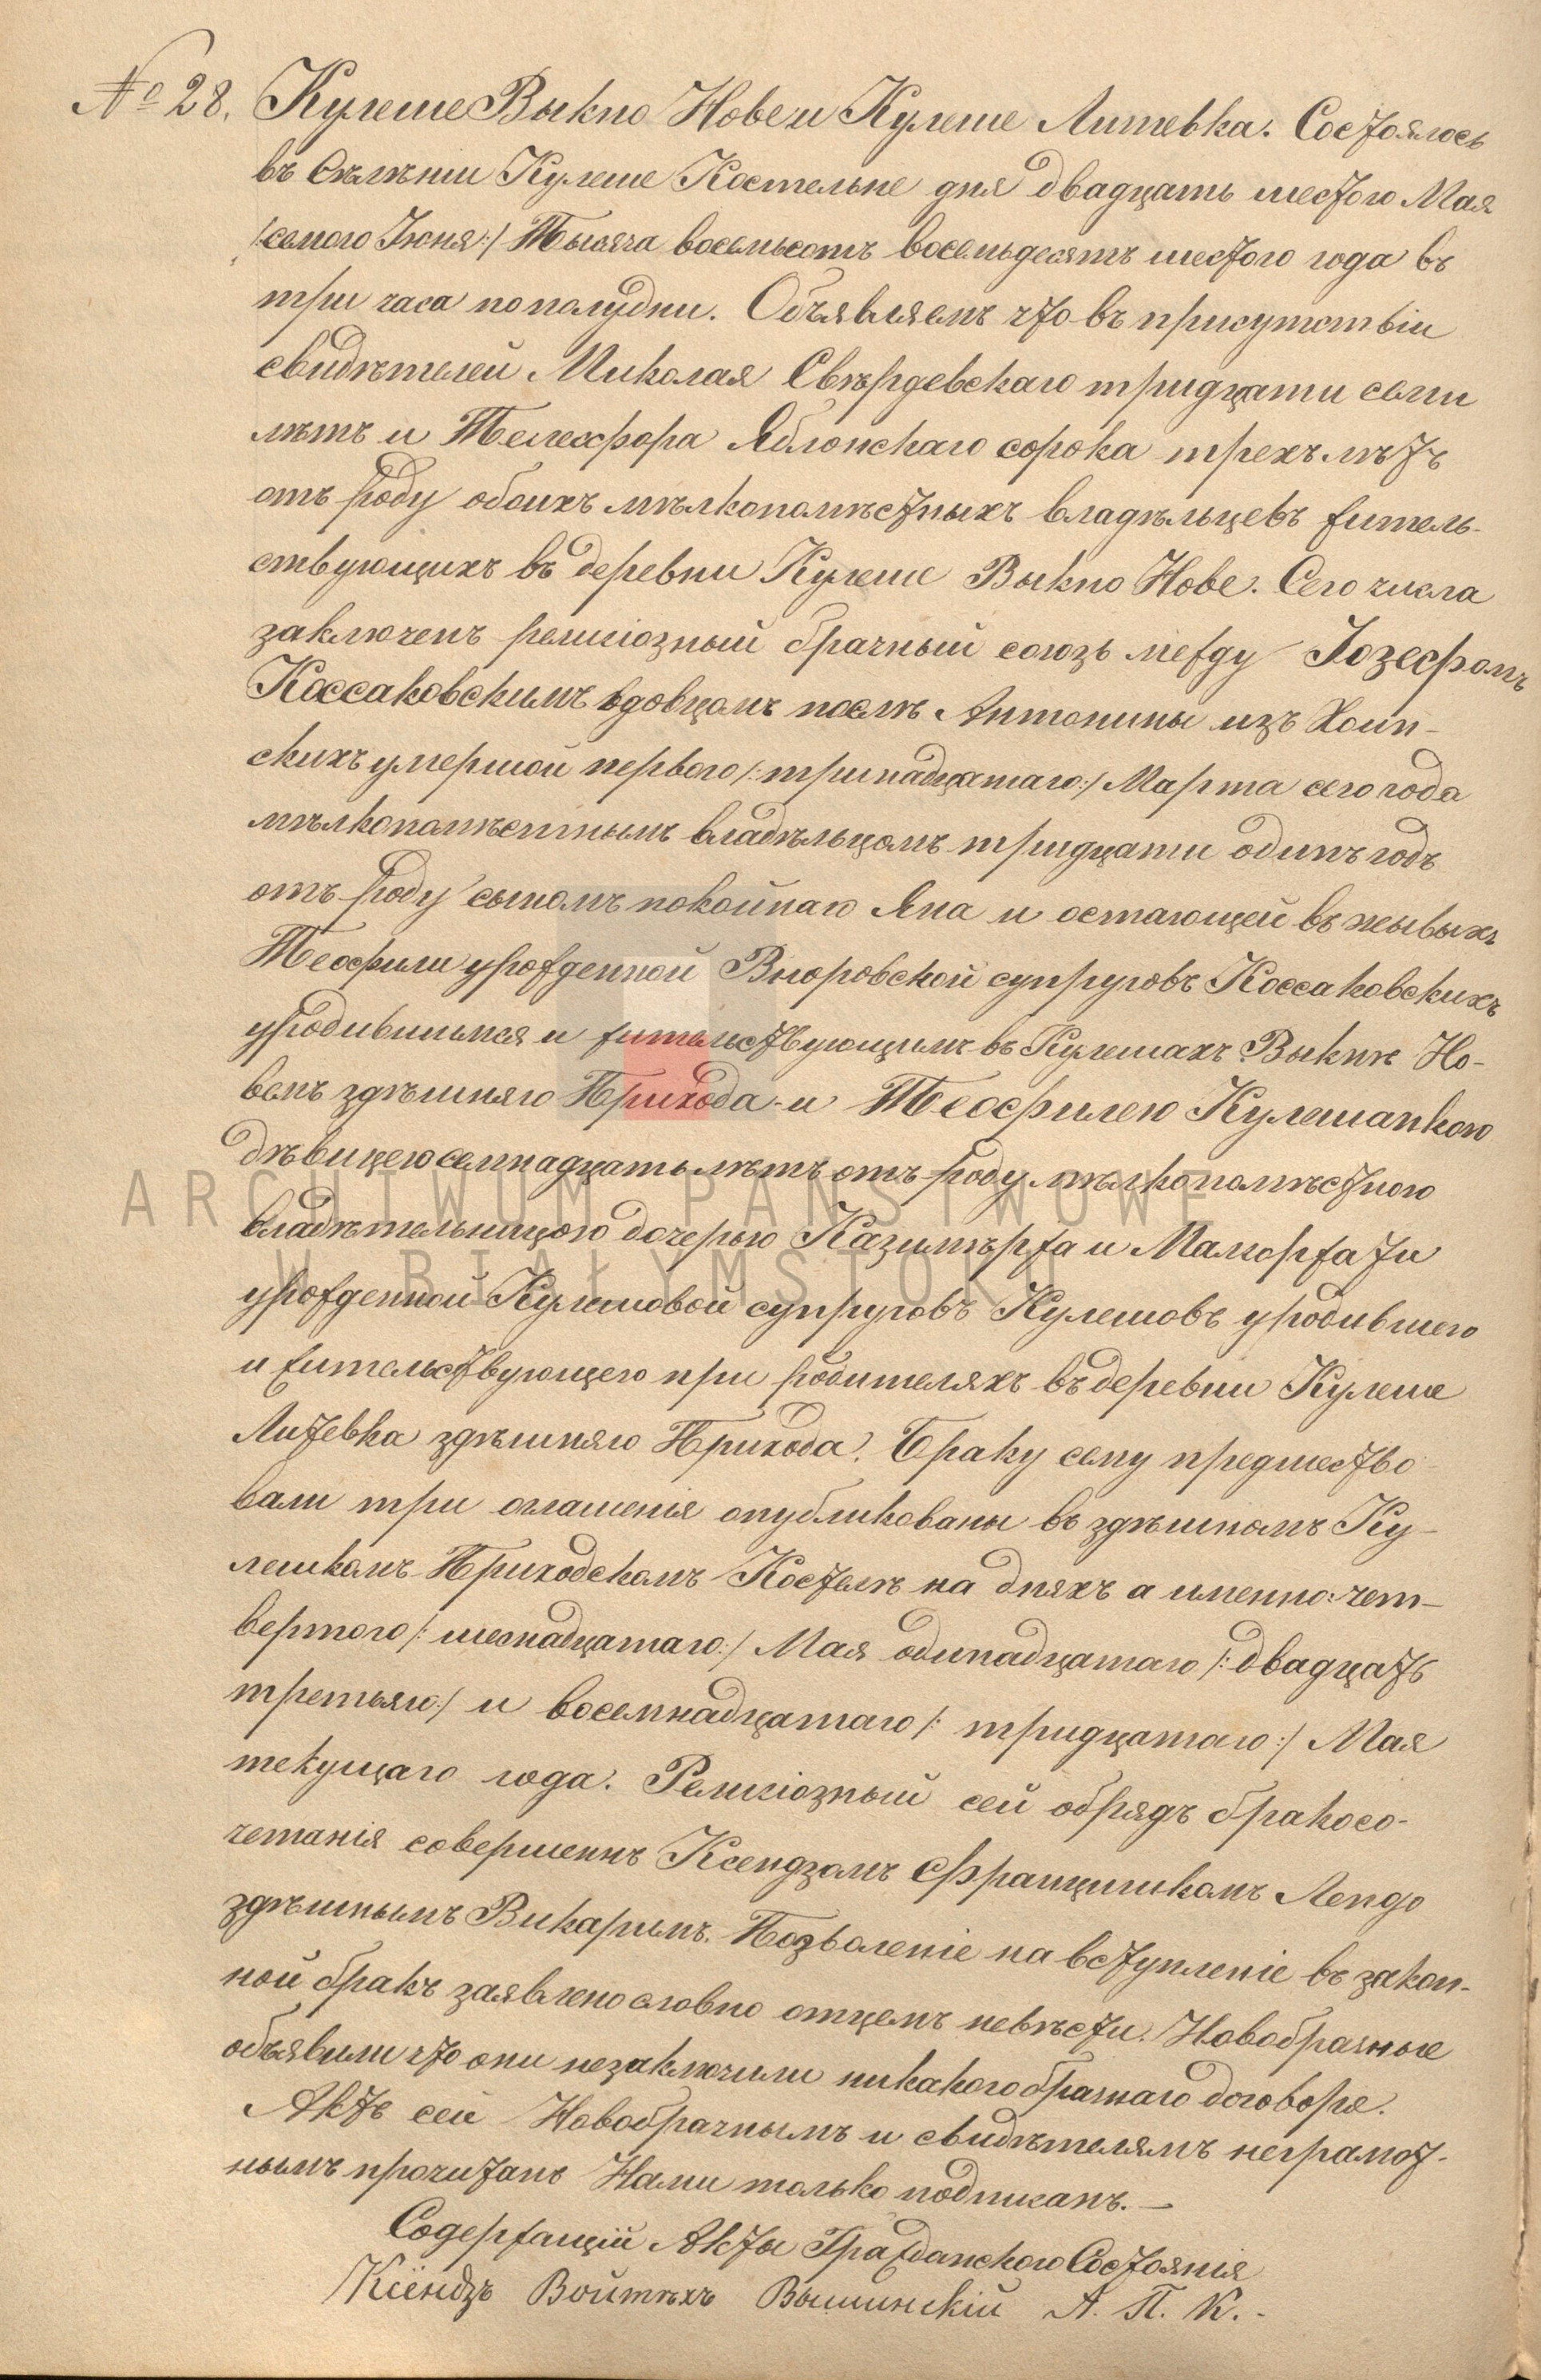 № 28. Кулеше Выкно Нове и Кулеше Литевка. Состоялось
въ Селѣнии Кулеше Костельне дня двадцать шестого Мая
/:семого Іюня:/ Тысяча восемьсотъ восемьдесятъ шестого года въ
три часа по полудни. Объявляемъ что въ присутствіи
свидѣтелей Миколая Свѣрдевскаго тридцати семи
лѣтъ и Телесфора Яблонскаго сорока трехъ лѣтъ
отъ роду обоихъ мѣлкопомѣстныхъ владѣльцевъ житель-
ствующихъ въ деревни Кулеше Выкно Нове. Сего числа
заключенъ религіозный брачный союзъ между Іозефомъ
Коссаковскимъ вдовцомъ послѣ Антонины изъ Хоин-
скихъ умершой первого /:тринадцатаго:/ Марта сего года
мѣлкопомѣстнымъ владѣльцомъ тридцати одинъ годъ
отъ роду сыномъ покойнаго Яна и остающей въ жывыхъ
Теофили урожденной Выоровской супруговъ Коссаковскихъ
уродившымся и жительствующимъ въ Кулешахъ Выкнѣ Но-
вемъ здѣшняго Прихода и Теофилею Кулешанкою
дѣвицею семнадцать лѣтъ отъ роду мѣлкопомѣстною
владѣтельницою дочерью Казимѣржа и Малгоржаты
урожденной Кулешовой супруговъ Кулешовъ уродившею
и жительствующею при родителяхъ въ деревни Кулеше
Литевка здѣшняго Прихода. Браку сему предшество-
вали три оглашенія опубликованы въ здѣшномъ Ку-
лешкомъ Приходскомъ Костелѣ на дняхъ а именно: чет-
вертого /:шеснадцатаго:/ Мая одинадцатаго /:двадцать
третьяго:/ и восемнадцатаго /:тридцатаго:/ Мая
текущаго года. Религіозный сей обрядъ бракосо-
четанія совершенъ Ксендзомъ Францишкомъ Лендо
здѣшнымъ Викаримъ. Позволеніе на вступленіе въ закон-
ной бракъ заявлено словно отцемъ невѣсты. Новобрачные
объявили что они незаключили никакого брачнаго договора.
Актъ сей Новобрачнымъ и свидѣтелямъ неграмот-
нымъ прочитанъ Нами только подписанъ. —
Содержащій Акты Гражданского Состоянія
Ксёндзъ Войтѣхъ Вышинскій А. П. К. -
ARCHIWUM PAŃSTWOWE
W BIAŁYMSTOKU